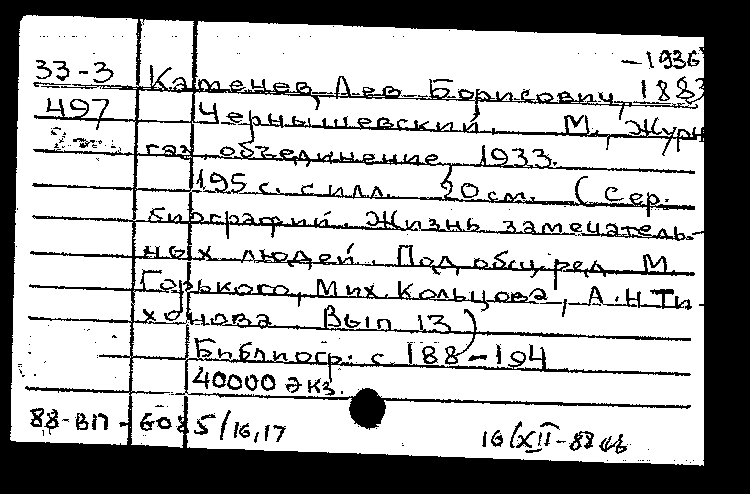 -1936
33-3 Каменев, Лев Борисович, 1883
497 Чернышевский. М., Журн
газ. объединение, 1933.
195 с. с илл. 20 см. (Сер.
биографий. Жизнь замечатель-
ных людей. Под общ. ред. М.
Горького, Мих. Кольцова, А.Н Ти-
хонова. Вып 13)
Библиогр: с 188-194
40000 экз.
88-ВП-6085/16,17
16/XII-88